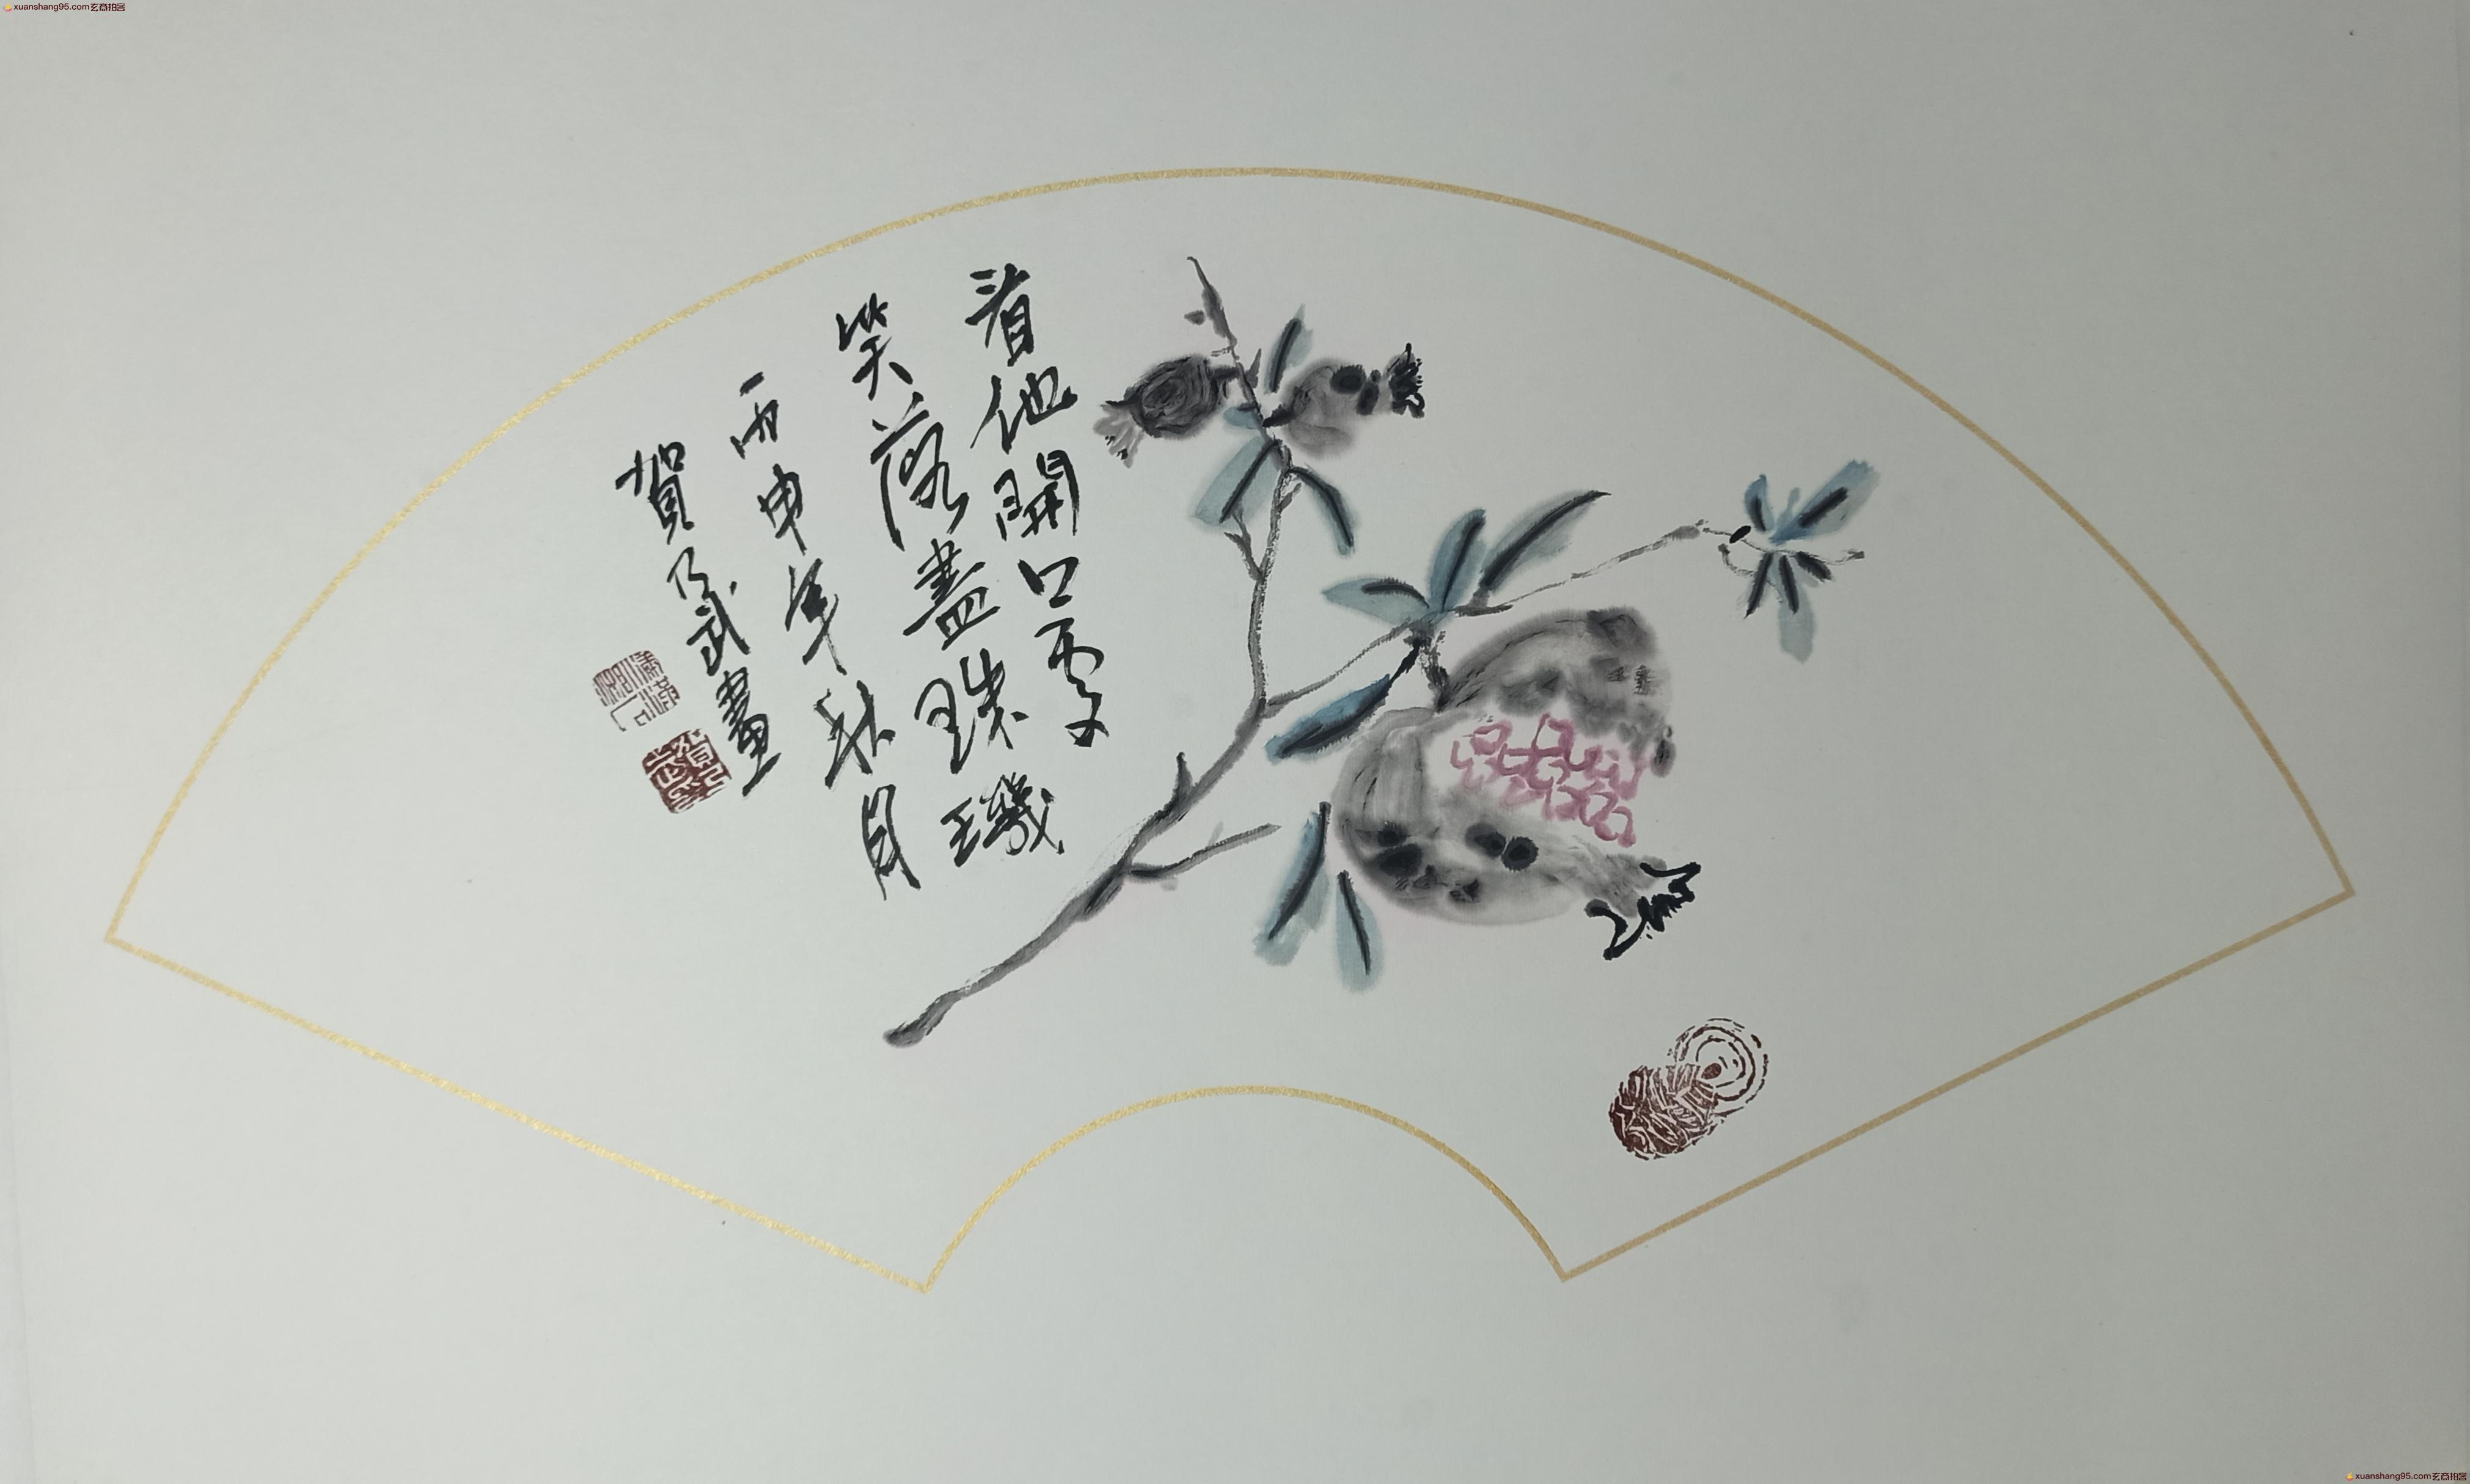 xuanshang95.com玄商拍客
看他開口處
笑落盡珠璣
丙申年秋月
賀乃武畫
xuanshang95.com玄商拍客